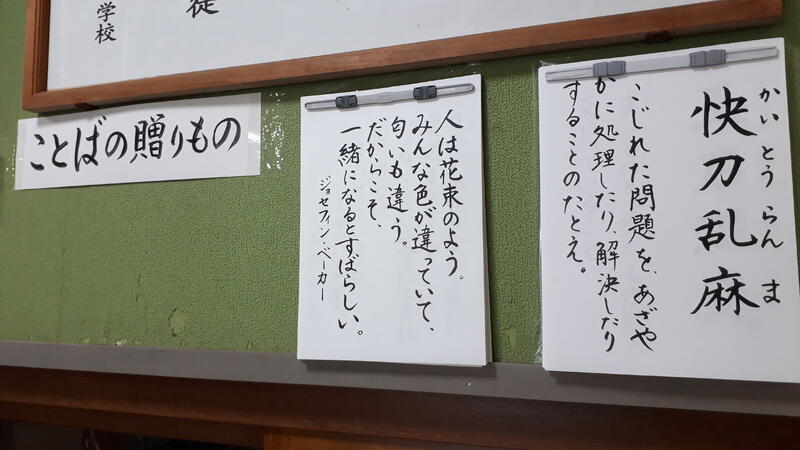 学校
徒
ことばの贈りもの
人は花束のよう。
みんな色が違っていて、
匂いも違う。
だからこそ、
一緒になるとすばらしい。
ジョセフィン・ベーカー
快刀乱麻
かいとうらんま
こじれた問題を、あざや
かに処理したり、解決したり
することのたとえ。